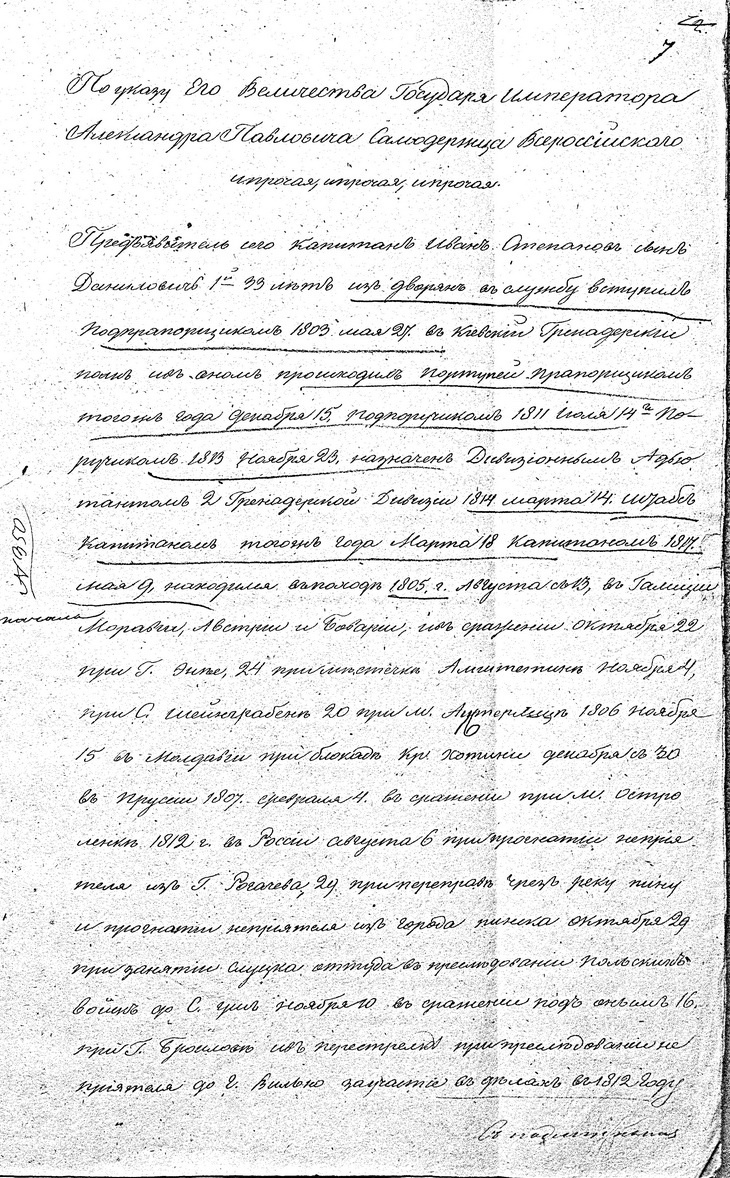 7
По указу Его Величества Государя Императора
Александра Павловича Самодержца Всероссійского
и прочая, и прочая, и прочая.
Предъявитель сего Капитанъ Иванъ Степановъ сынъ
Даниловичъ 1й 33 летъ изъ дворянъ въ службу вступилъ
Подпрапорщикомъ 1803 мая 27. въ Кіевскій Гренадерскій
полкъ ивъ ономъ происходилъ Портупей Прапорщикомъ
тогожъ года декабря 15. Подпоручикомъ 1811 Іюля 14го По-
ручикомъ 1813 Ноября 23, назначенъ Дивизіоннымъ Адъю
тантомъ 2 Гренадерской Дивизіи 1814 марта 14. Штабсъ
Капитаномъ тогожъ года Марта 18 Капитаномъ 1817.
мая 9, находился въ походъ 1805. г. Августа съ 13, въ Галиціи
начала
Моравіи, Австріи и Боваріи, ивъ сраженіи октября 22
при Г. Энсъ, 24 при местечкъ Амштетинъ Ноября 4,
при С. Шейнграбенъ 20 при м. Аустерлицъ 1806 ноября
15 въ Молдавіи при блокадъ Кр. Хотини декабря съ 30
въ Пруссіи 1807. февраля 4. въ сраженіи при М. Остро
ленкъ 1812 г. въ Россіи августа 6 при прогнатіи непрія
теля изъ Г. Рогачева, 29 при переправъ чрезъ реку пину
и прогнатіи непріятеля изъ города пинска октября 29
при занятіи Слуцка оттуда въ преследованіи Польскихъ
войскъ до С. Ноября 10 въ сраженіи подъ онымъ 16.
при Г. ивъ перестрелкъ при преследованіи не
пріятеля до Г. Вильно за участіе въ делахъ въ 1812 году